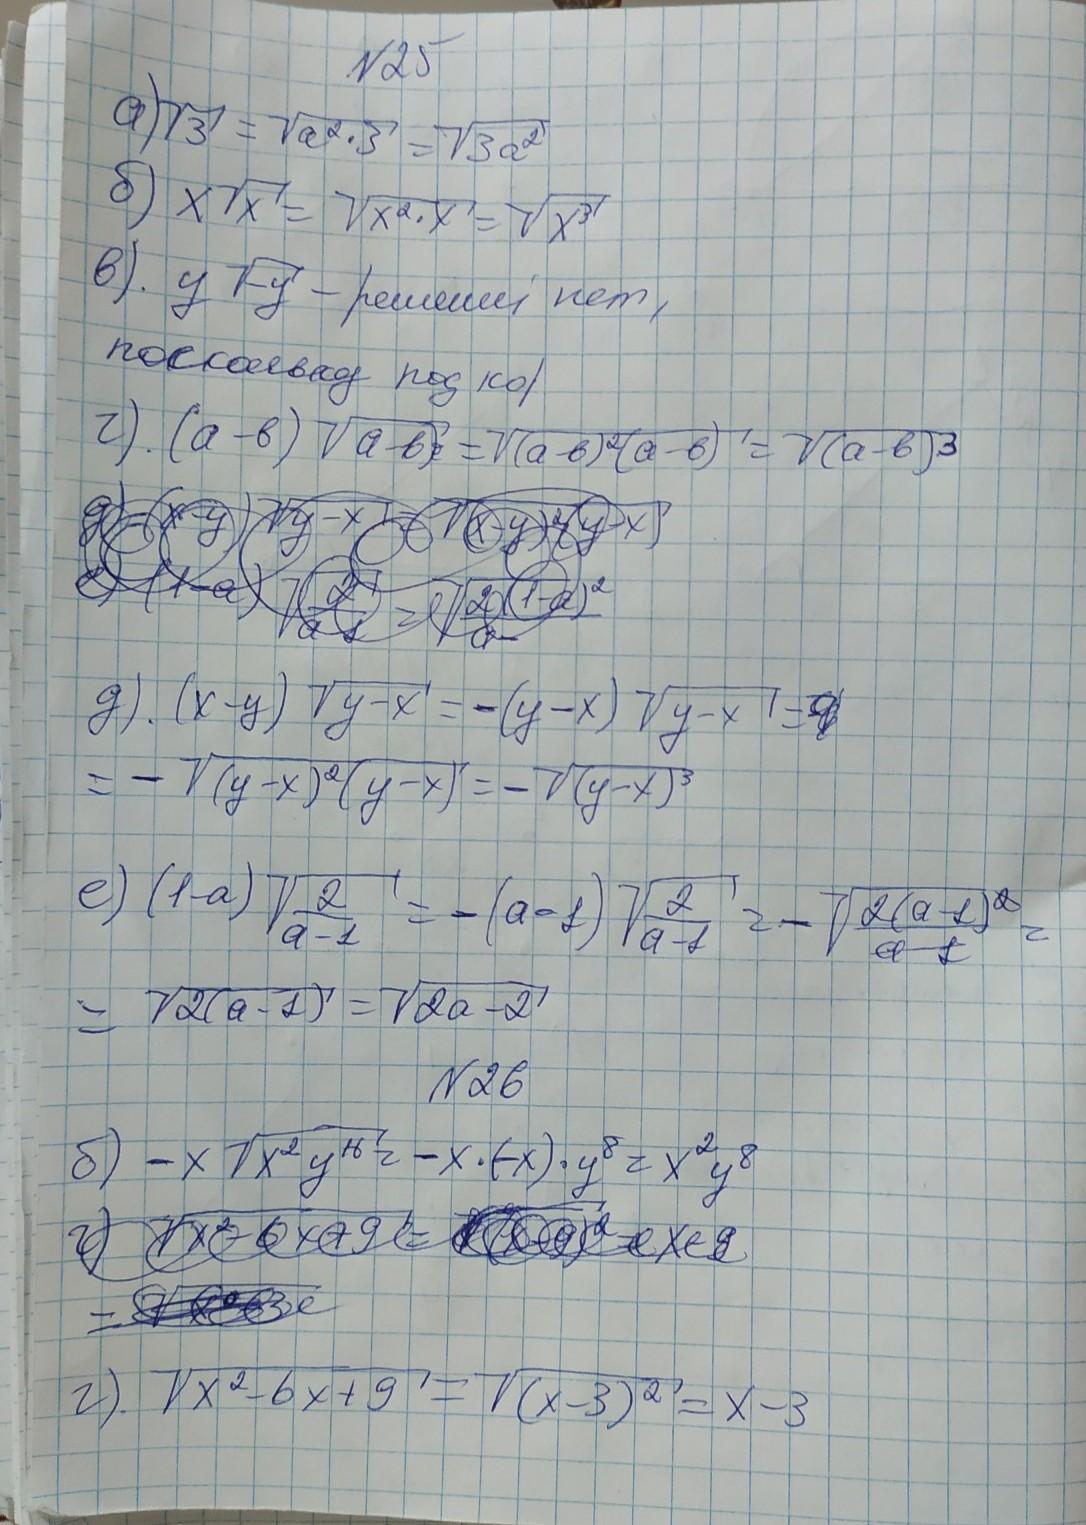 N25
а) √3 = √a²·3 = √3a²
б) x√x = √x²·x = √x³
в). y√-y – решений нет,
поскольку под кор
г). (a-b)√a-b = √(a-b)²(a-b) = √(a-b)³
д). (x-y)√y-x = -(y-x)√y-x =
= -√(y-x)²(y-x) = -√(y-x)³
е) (1-a)√2/a-1 = -(a-1)√2/a-1 = -√2(a-1)²/a-1 =
= √2(a-1) = √2a-2
N26
б) -x√x²y¹⁶ = -x·(-x)·y⁸ = x²y⁸
г). √x²-6x+9 = √(x-3)² = x-3